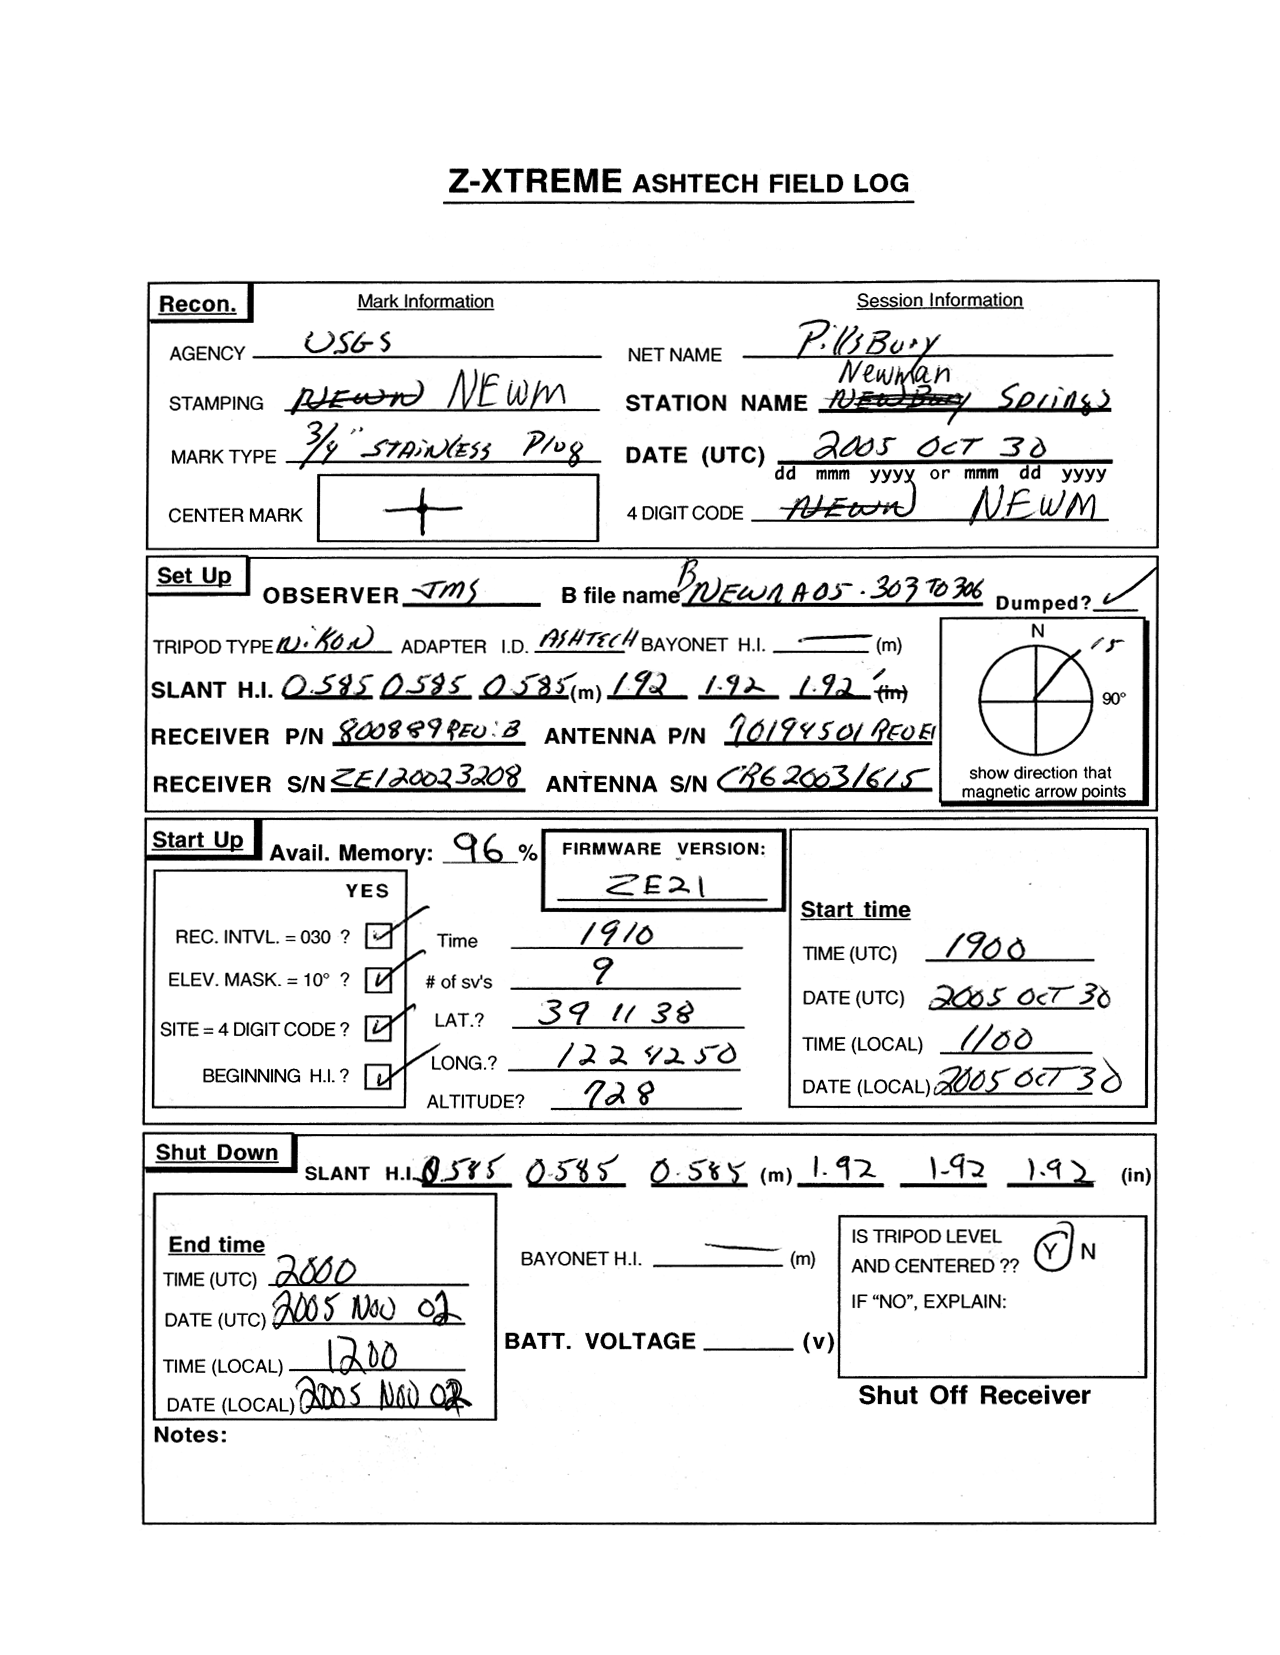 Z-XTREME ASHTECH FIELD LOG
Recon.
Mark Information
Session Information
AGENCY USGS
NET NAME PillsBury
STAMPING NEWM
STATION NAME Newman Springs
MARK TYPE 3/4" STAINLESS Plug
DATE (UTC) 2005 OCT 30
dd mmm yyyy or mmm dd yyyy
CENTER MARK
4 DIGIT CODE NEWM
Set Up
OBSERVER JMS
B file name BNEWNA05.303 TO 306
Dumped?
TRIPOD TYPE NiKON ADAPTER I.D. ASHTECH BAYONET H.I. — (m)
SLANT H.I. 0.585 0.585 0.585 (m) 1.92 1.92 1.92 ' (in)
RECEIVER P/N 800889 REV:B ANTENNA P/N 70194501 REV E1
RECEIVER S/N ZE120023208 ANTENNA S/N CR620031615
N
15
90°
show direction that
magnetic arrow points
Start Up
Avail. Memory: 96 %
FIRMWARE VERSION:
ZE21
YES
REC. INTVL. = 030 ?
ELEV. MASK. = 10° ?
SITE = 4 DIGIT CODE ?
BEGINNING H.I. ?
Time 1910
# of sv's 9
LAT.? 39 11 38
LONG.? 122 42 50
ALTITUDE? 728
Start time
TIME (UTC) 1900
DATE (UTC) 2005 OCT 30
TIME (LOCAL) 1100
DATE (LOCAL) 2005 OCT 30
Shut Down
SLANT H.I. 0.585 0.585 0.585 (m) 1.92 1.92 1.92 (in)
End time
TIME (UTC) 2000
DATE (UTC) 2005 NOV 02
TIME (LOCAL) 1200
DATE (LOCAL) 2005 NOV 02
BAYONET H.I. — (m)
BATT. VOLTAGE (v)
IS TRIPOD LEVEL
AND CENTERED ?? Y N
IF “NO”, EXPLAIN:
Shut Off Receiver
Notes: